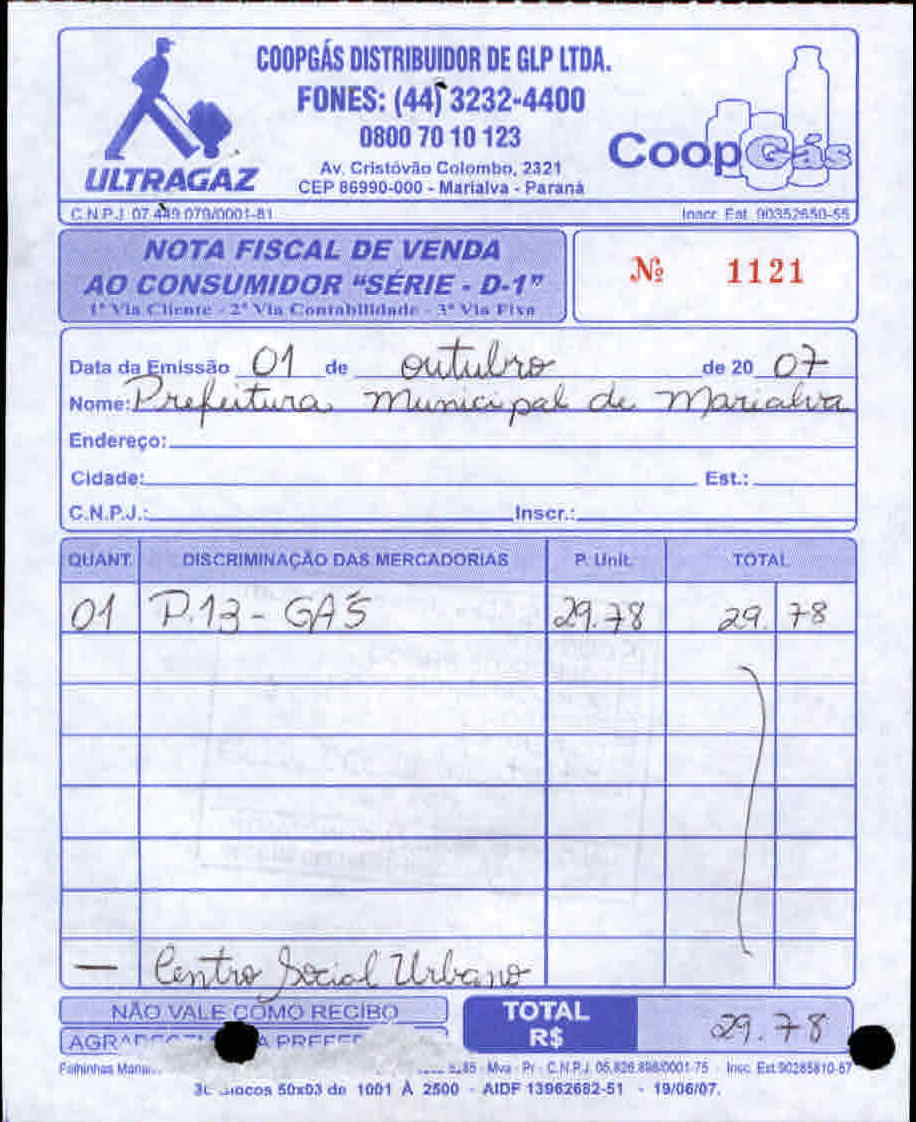 COOPGÁS DISTRIBUIDOR DE GLP LTDA.
FONES: (44) 3232-4400
0800 70 10 123
Av. Cristóvão Colombo, 2321
CEP 86990-000 - Marialva - Paraná
ULTRAGAZ
CoopGás
C.N.P.J. 07.449.079/0001-81
Inscr. Est. 90352650-55
NOTA FISCAL DE VENDA
AO CONSUMIDOR "SÉRIE - D-1"
1ª Via Cliente - 2ª Via Contabilidade - 3ª Via Fixa
Nº 1121
Data da Emissão 01 de outubro de 20 07
Nome: Prefeitura Municipal de Marialva
Endereço:
Cidade: Est.:
C.N.P.J.: Inscr.:
QUANT. DISCRIMINAÇÃO DAS MERCADORIAS P. Unit. TOTAL
01 P.13 - GÁS 29.78 29.78
— Centro Social Urbano
NÃO VALE COMO RECIBO
TOTAL
R$ 29.78
Folhinhas - Mva - Pr - C.N.P.J. 05.826.898/0001-75 - Insc. Est.90285810-87
50x03 de 1001 À 2500 - AIDF 13962682-51 - 19/06/07.